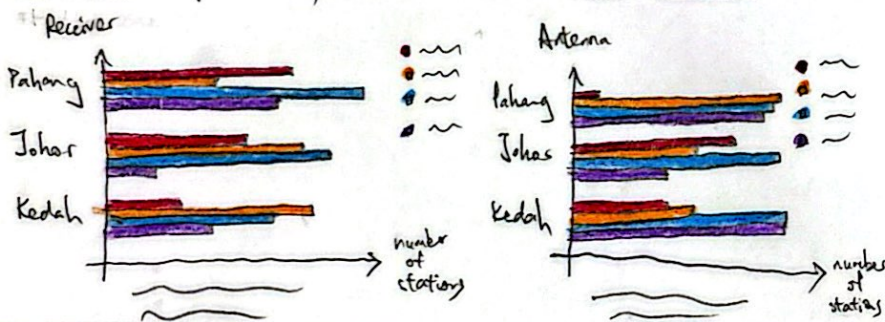 Receiver
Pahang
Johor
Kedah
number
of
stations
Antenna
Pahang
Johor
Kedah
number
of
stations